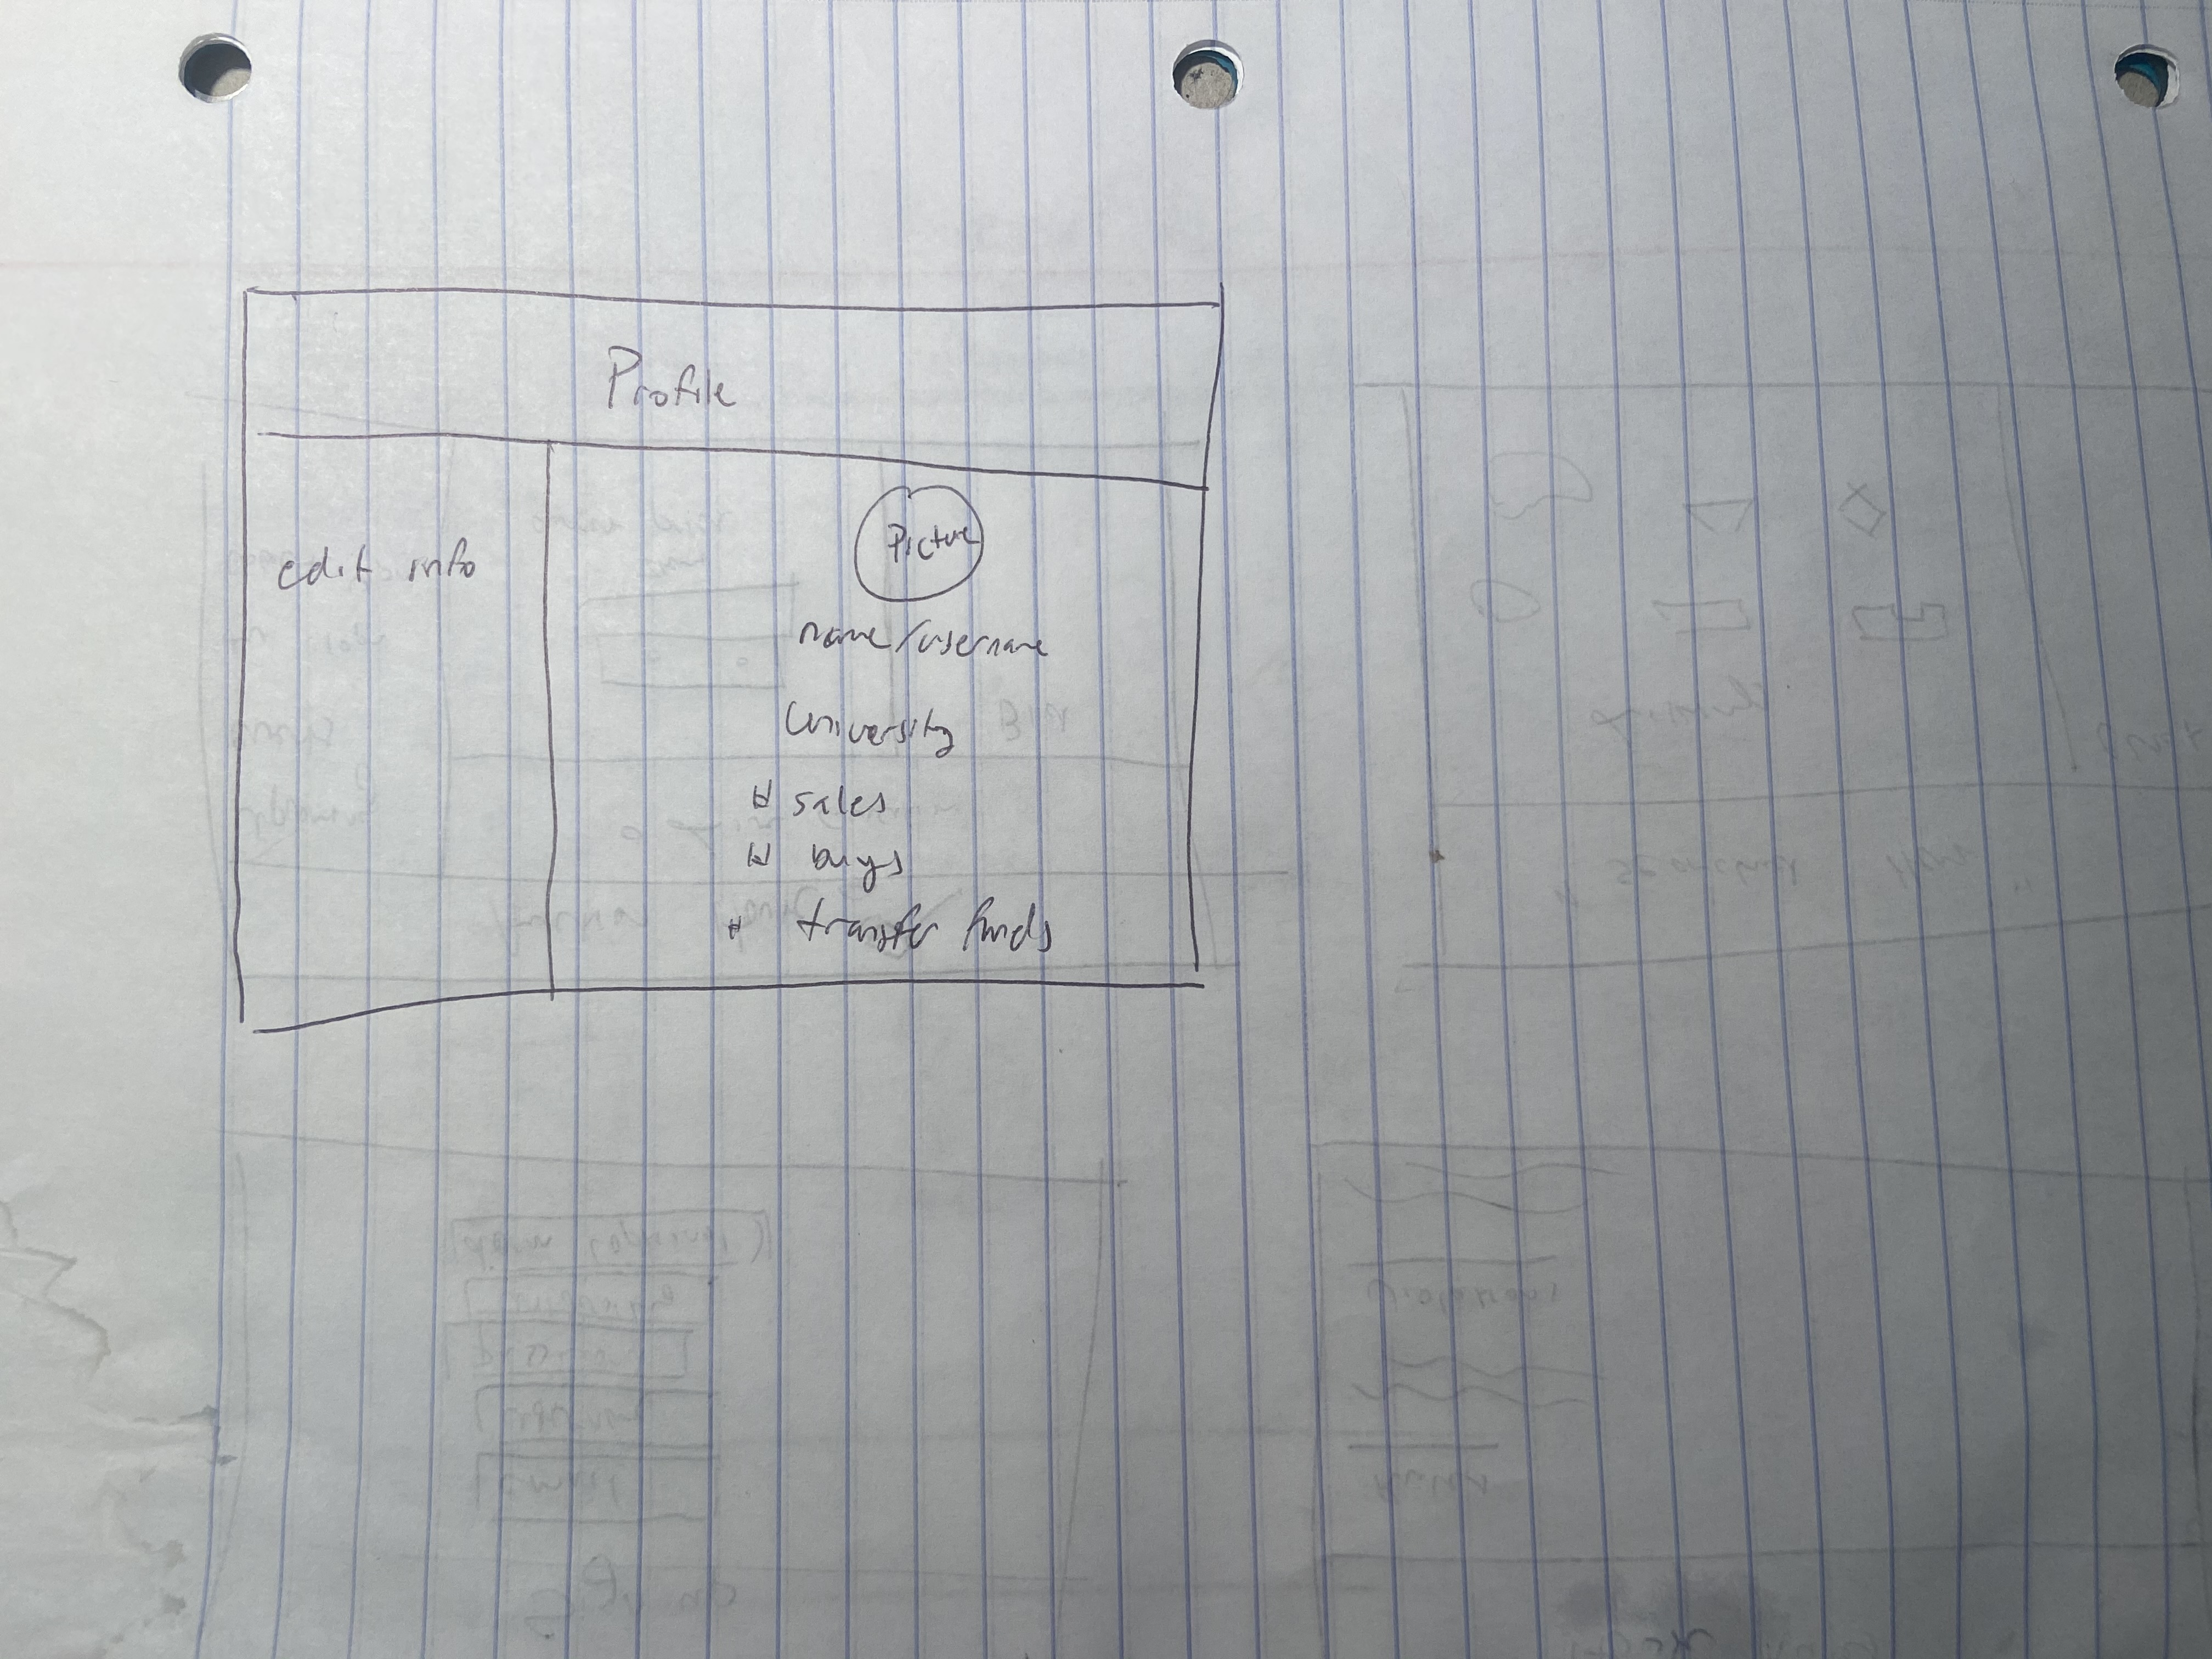 Profile
edit info
Picture
name/username
University
# sales
# buys
# transfer funds